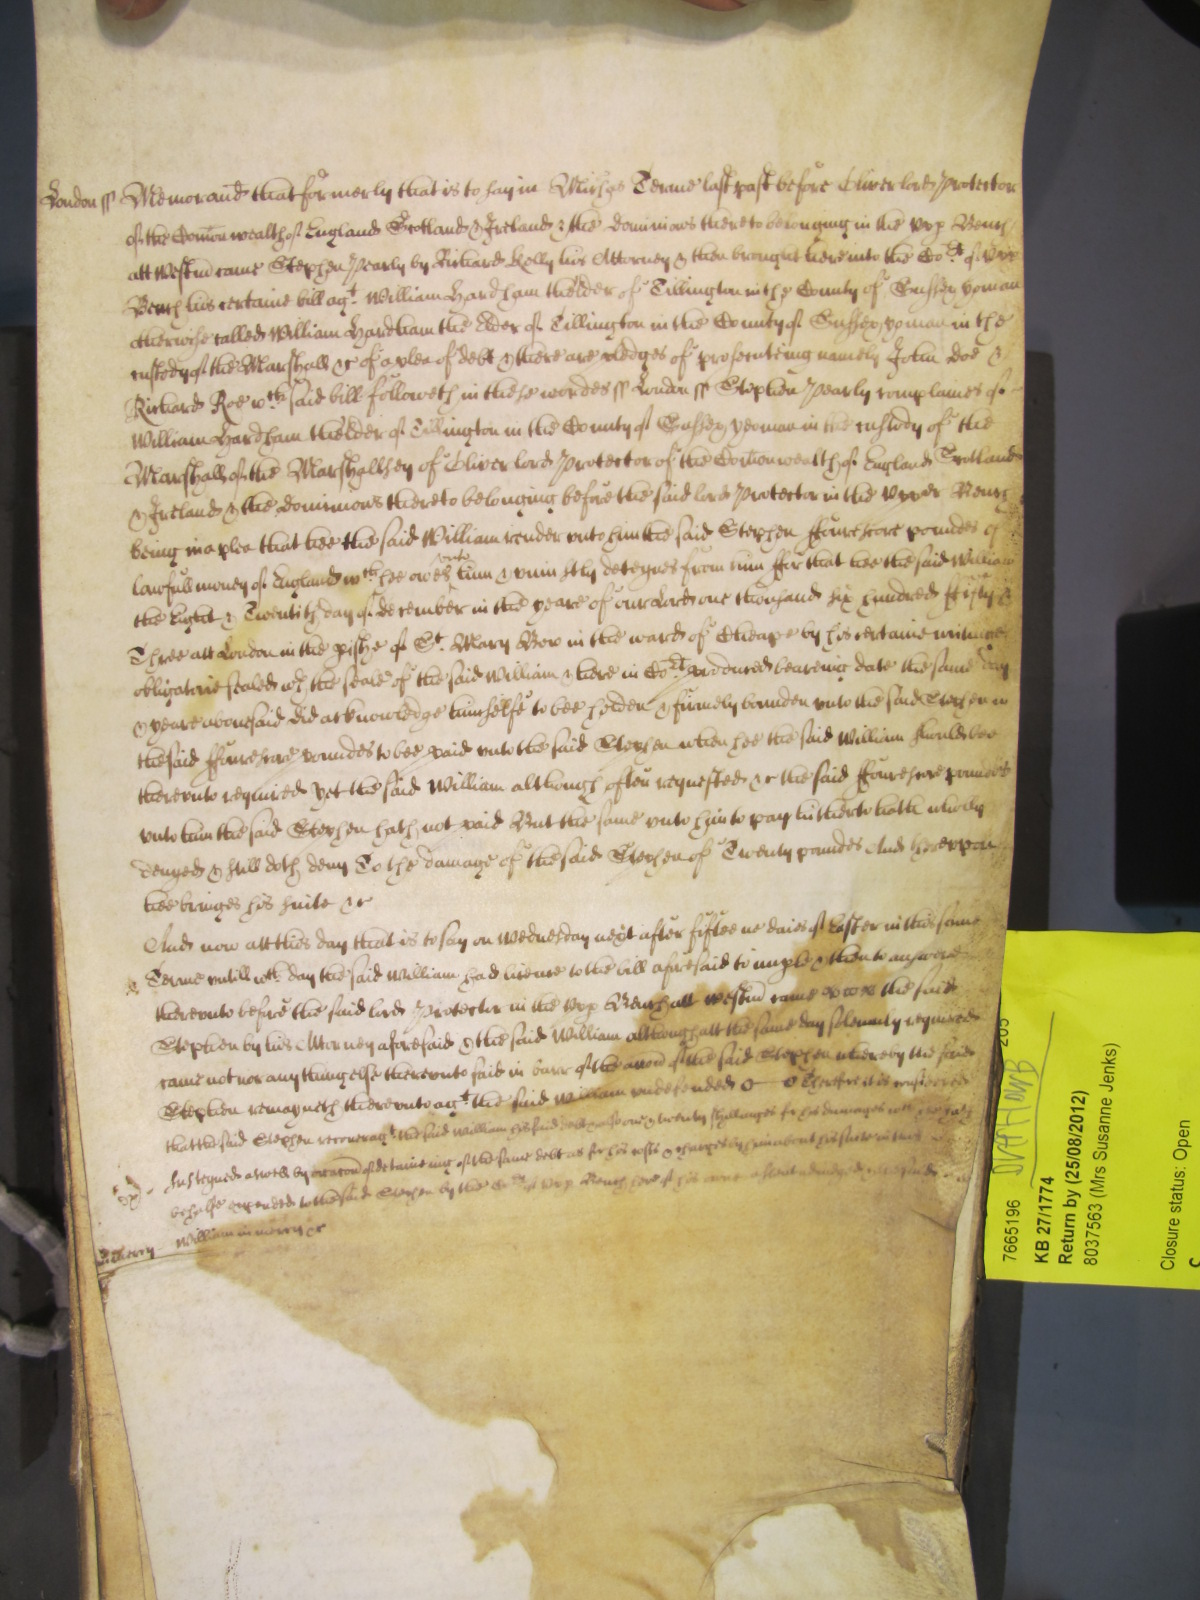 London ss Memorand that formerly that is to say in Michas Terme last past before Oliver lord Protector
of the Comon wealth of England Scotland & Ireland & the dominions thereto belonging in the Upp Bench
att Westm came Stephen Pearly by Richard Kelly his Attorney & then brought here into the Cort of Upp
Bench his certaine bill agt William Hardham thelder of Tillington in the County of Sussex yoman
otherwise called William Hardham the elder of Tillington in the County of Sussex yoman in the
custody of the Marshall &c of a plea of debt & there are pledges of prosecuting namely John Doe &
Richard Roe wch said bill followeth in these wordes ss London ss Stephen Pearly complaines of
William Hardham thelder of Tillington in the County of Sussex yeoman in the custody of the
Marshall of the Marshallsey of Oliver lord Protector of the Comonwealth of England Scotland
& Ireland & the dominions thereto belonging before the said lord Protector in the Upper Bench
being in a plea that hee the said William render unto him the said Stephen ffourescore poundes of
lawfull money of England wch he owes unto him & uniustly deteynes from him ffor that hee the said William
the Eight & Twentith day of december in the yeare of our Lord one thousand six hundred ffifty &
Three att London in the pishe of St. Mary Bow in the ward of Cheape by his certaine writinge
obligatorie sealed wth the seale of the said William & here in Cort produced bearing date the same day
& yeare abovesaid did acknowledge himselfe to bee holden & firmely bounden unto the said Stephen in
the said ffourescore poundes to bee paid unto the said Stephen when hee the said William should bee
thereunto required Yet the said William although often requested &c the said ffourescore poundes
unto him the said Stephen hath not paid But the same unto him to pay hitherto hath utterly
denyed & still doth deny To the damage of the said Stephen of Twenty poundes And thereupon
hee bringes his suite &c
And now att this day that is to say on Wednesday next after fifteene daies of Easter in this same
Terme untill wch day the said William had licence to the bill aforesaid to imple & then to answere
thereunto before the said lord Protector in the Upp Bench att Westm came the said
Stephen by his Attorney aforesaid & the said William although att the same day solemnly required
came not nor any thing else thereunto said in barr of the accon of the said Stephen whereby the said
Stephen remayneth thereunto agt the said William undefended Therfore it is considered
that the said Stephen recover agt the said William his said debt & one & twenty shillinges for his damages wch he hath
susteyned aswell by occacon of deteineing of the same debt as for his costs & charges by him about his suite in this
behalfe expended to the said Stephen by the Cort of Upp Bench here of his owne assent adiudged And the said
William in mercy &c
In mercy
7665196
KB 27/1774
Return by (25/08/2012)
8037563 (Mrs Susanne Jenks)
Closure status: Open